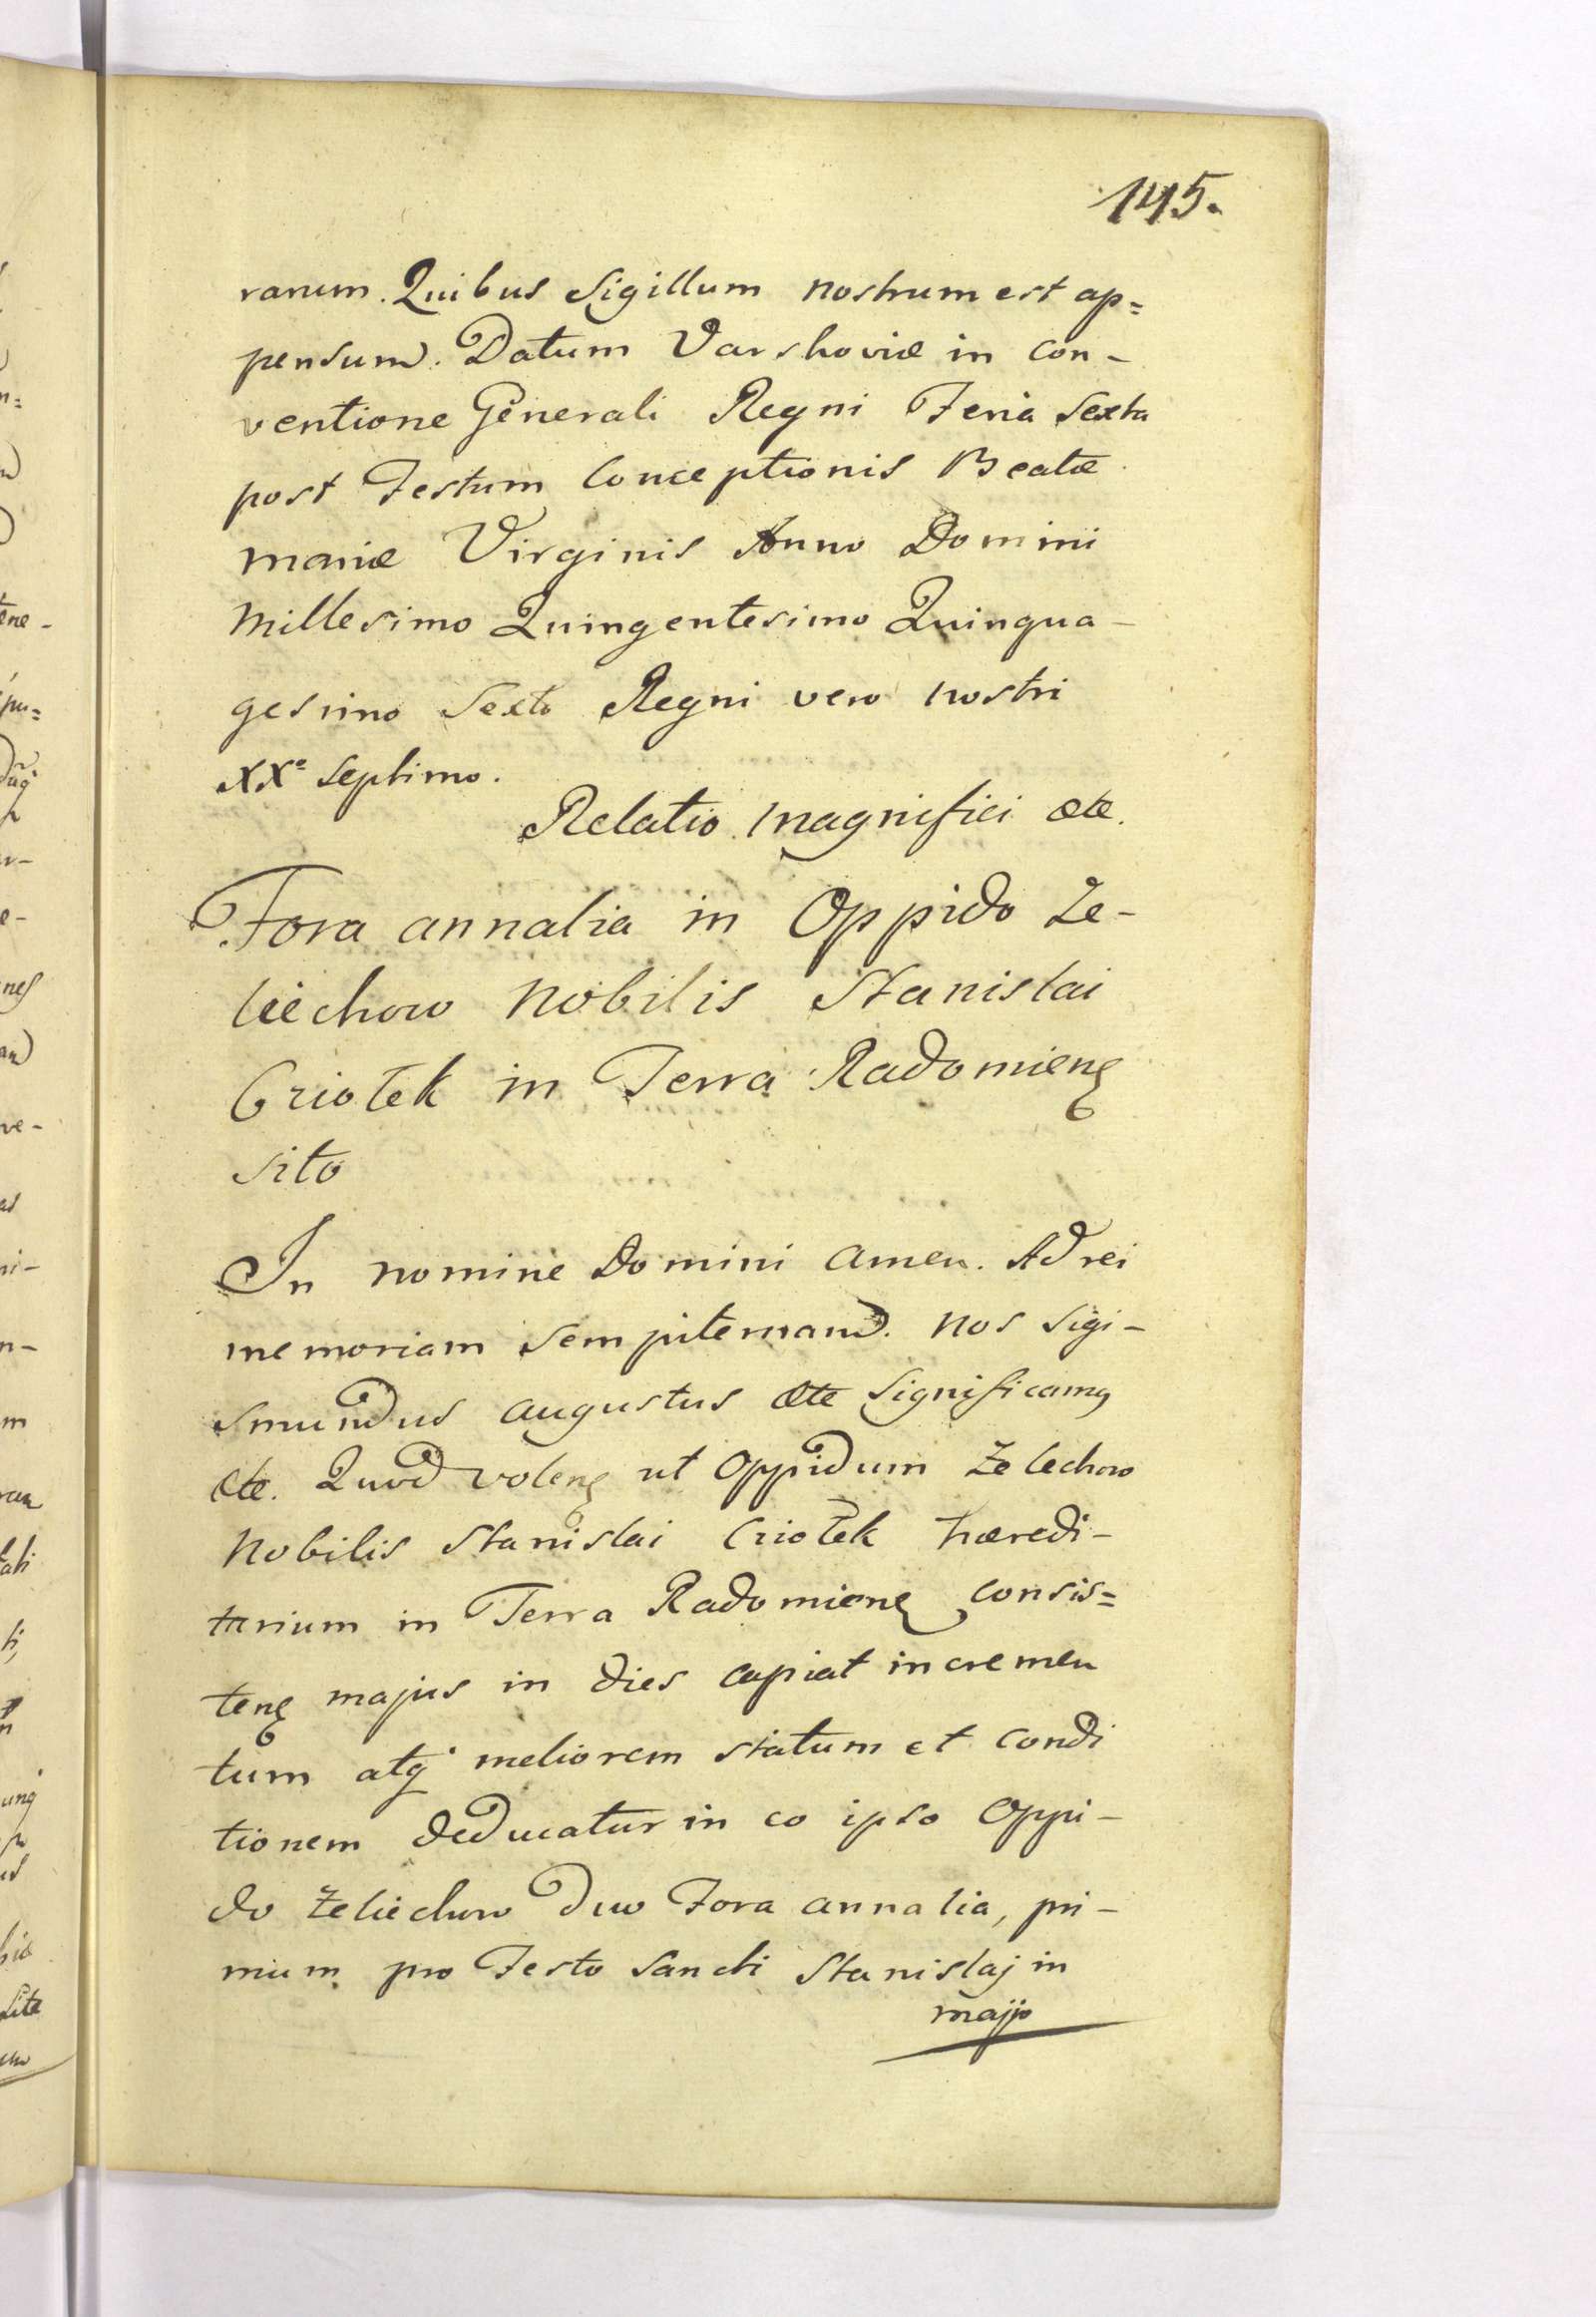 145.
rarum. Quibus Sigillum nostrum est ap=
pensum. Datum Varshoviæ in con-
ventione Generali Regni Feria Sexta
post Festum Conceptionis Beatæ
Mariæ Virginis Anno Domini
Millesimo Quingentesimo Quinqua-
gesimo Sexto Regni vero nostri
XXº Septimo.
Relatio Magnifici etc.
Fora annalia in Oppido Ze-
liechow Nobilis Stanislai
Criotek in Terra Radomieng
sito
In nomine Domini Amen. Ad rei
memoriam Sempiternam. Nos Sigi-
smundus Augustus etc Significamg
etc. Quod voleng ut Oppidum Zelechow
Nobilis Stanislai Criotek hæredi-
tarium in Terra Radomieng consis=
teng majus in dies capiat incremen
tum atq meliorem statum et condi
tionem deducatur in eo ipso Oppi-
do Zeliechow duo Fora annalia, pri-
mum pro Festo Sancti Stanislaj in
majo